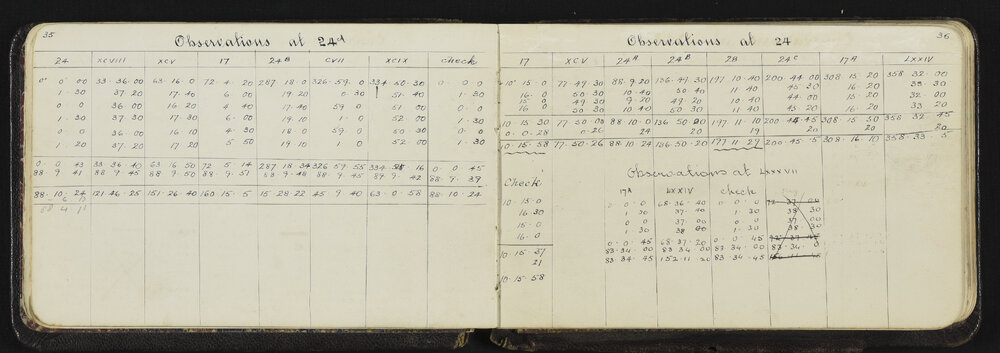 35
Observations at 24d
24 XCVIII XCV 17 24B CVII XCIX Check
0 0 00 33-36-00 63-16 0 72-4-20 287 18-0 326-59-0 334-50-30 0-0-0
1-30 37 20 17-40 6 00 19 20 0-30 51-40 1-30
0 0 36 00 16 20 4 40 17-40 59 0 51 00 0-0
1-30 37 30 17-30 6 00 19-10 1-0 52 00 1-30
0 0 36 00 16 10 4-30 18 0 59 0 50 30 0-0
1-20 37-20 17 20 5 50 19 10 1 0 52 00 1-30
0 0 43 33 36-40 63 16 50 72-5-14 287 18 34 326 59-55 334 16 0 0 45
88 9 41 88-9-45 88 9-50 88-9-51 83 9-48 88 9-45 89 9-42 88-9-39
88-10-24 121-46-25 151-26-40 160 15-5 15-28-22 45-9-40 63-0-58 88-10-24
36
Observations at 24
17 XCV 24A 24B 2B 24C 17A LXXIV
10-15 0 77-49-30 88-9-20 136-49-30 197 10-40 200 44 00 308 15 20 358 32 00
16-0 50 30 10-40 50 40 11 40 45 30 16-20 33-30
15 0 49 30 9-20 49 20 10 40 44 00 15-20 32-00
16 0 50 30 10-40 50 30 11 40 45-20 16-20 33 20
10-15 30 77 50-00 88-10-0 136 50-20 197 11-10 200 44-45 308-15 50 358 32 45
0-0-28 0-26 24 20 19 20 20 20
10-15-58 77-50-26 88 10-24 136 50 20 197 11 27 200 45-5 308-16 10 358-33 5
Check
10-15-0
16-30
15-0
16-0
10-15-37
21
10-15-58
Observations at LXXXVII
17A LXXIV Check
0 0 0 68-36-40 0-0-0 72 37 00
1 30 37-40 1-30 38 30
0 0 37 00 0 0 37 00
1 30 38 00 1-30 38-30
0-0 45 68-37-20 0-0 45
83-34-00 83 34 00 83-34 00 83-34-0
83 34-45 152-11 20 83 34-45